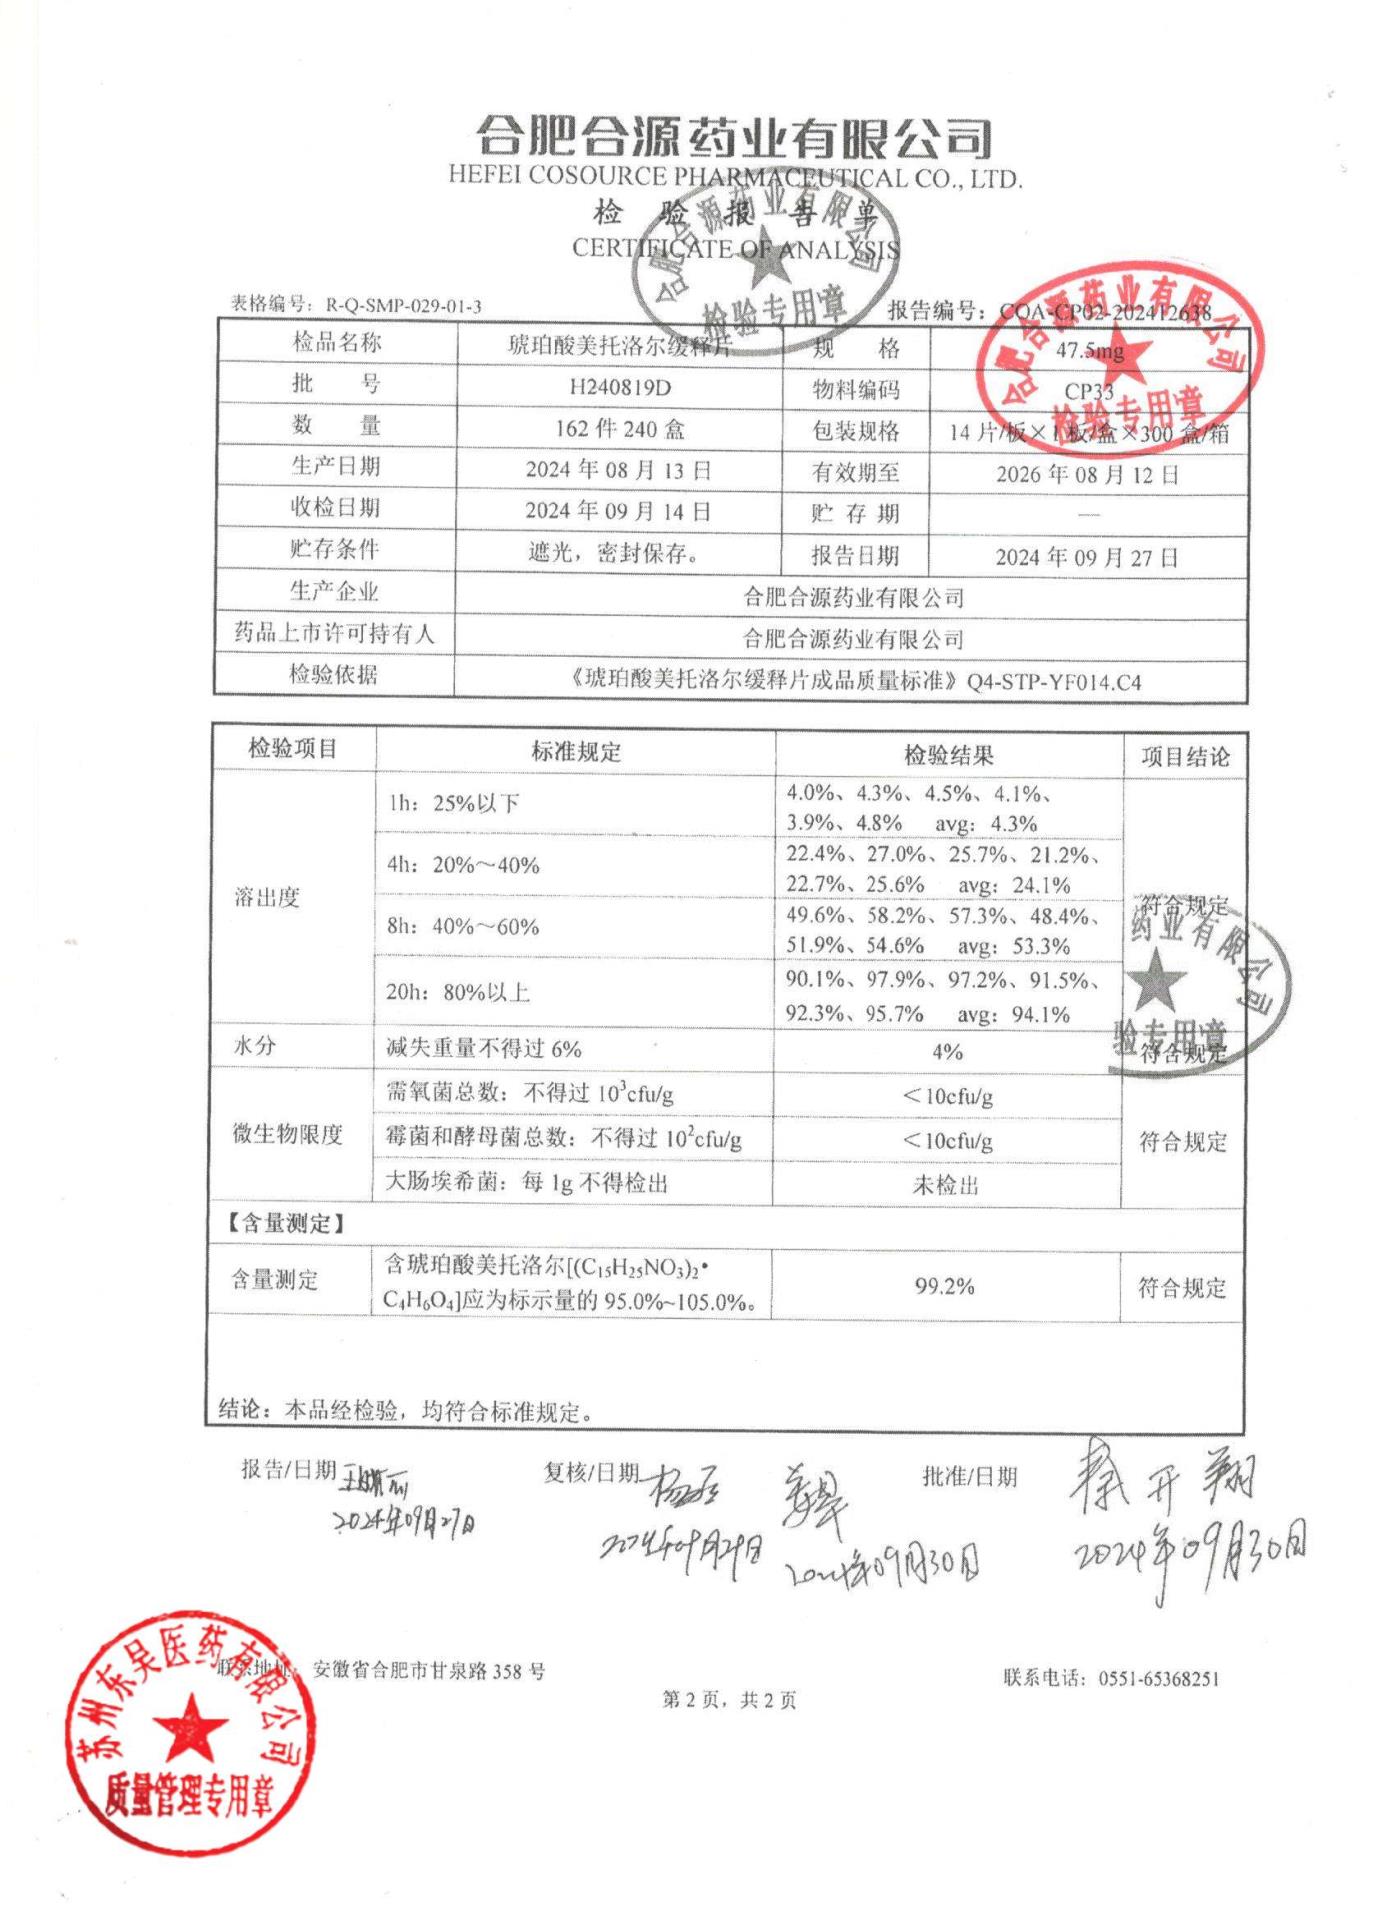 合肥合源药业有限公司
HEFEI COSOURCE PHARMACEUTICAL CO., LTD.
检 验 报 告 单
CERTIFICATE OF ANALYSIS
合肥合源药业有限公司
检验专用章
合肥合源药业有限公司
检验专用章
表格编号：R-Q-SMP-029-01-3 报告编号：COA-CP02-202412638
检品名称 琥珀酸美托洛尔缓释片 规 格 47.5mg
批 号 H240819D 物料编码 CP33
数 量 162 件 240 盒 包装规格 14 片/板×1 板/盒×300 盒/箱
生产日期 2024 年 08 月 13 日 有效期至 2026 年 08 月 12 日
收检日期 2024 年 09 月 14 日 贮 存 期 —
贮存条件 遮光，密封保存。 报告日期 2024 年 09 月 27 日
生产企业 合肥合源药业有限公司
药品上市许可持有人 合肥合源药业有限公司
检验依据 《琥珀酸美托洛尔缓释片成品质量标准》Q4-STP-YF014.C4
检验项目 标准规定 检验结果 项目结论
溶出度
1h：25%以下
4.0%、4.3%、4.5%、4.1%、
3.9%、4.8% avg：4.3%
4h：20%～40%
22.4%、27.0%、25.7%、21.2%、
22.7%、25.6% avg：24.1%
8h：40%～60%
49.6%、58.2%、57.3%、48.4%、
51.9%、54.6% avg：53.3%
20h：80%以上
90.1%、97.9%、97.2%、91.5%、
92.3%、95.7% avg：94.1%
符合规定
药业有限公司
验专用章
水分 减失重量不得过 6% 4% 符合规定
微生物限度
需氧菌总数：不得过 10³cfu/g ＜10cfu/g
霉菌和酵母菌总数：不得过 10²cfu/g ＜10cfu/g
大肠埃希菌：每 1g 不得检出 未检出
符合规定
【含量测定】
含量测定
含琥珀酸美托洛尔[(C₁₅H₂₅NO₃)₂•
C₄H₆O₄]应为标示量的 95.0%~105.0%。
99.2% 符合规定
结论：本品经检验，均符合标准规定。
报告/日期 复核/日期 批准/日期
2024年09月27日 2024年09月29日 2024年09月30日 2024年09月30日
联系地址：安徽省合肥市甘泉路 358 号 联系电话：0551-65368251
第 2 页，共 2 页
苏州东吴医药有限公司
质量管理专用章